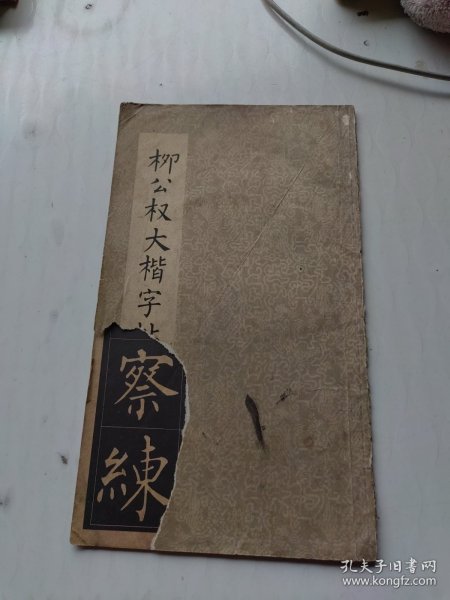 柳公权大楷字帖
察
練
孔夫子旧书网
www.kongfz.com